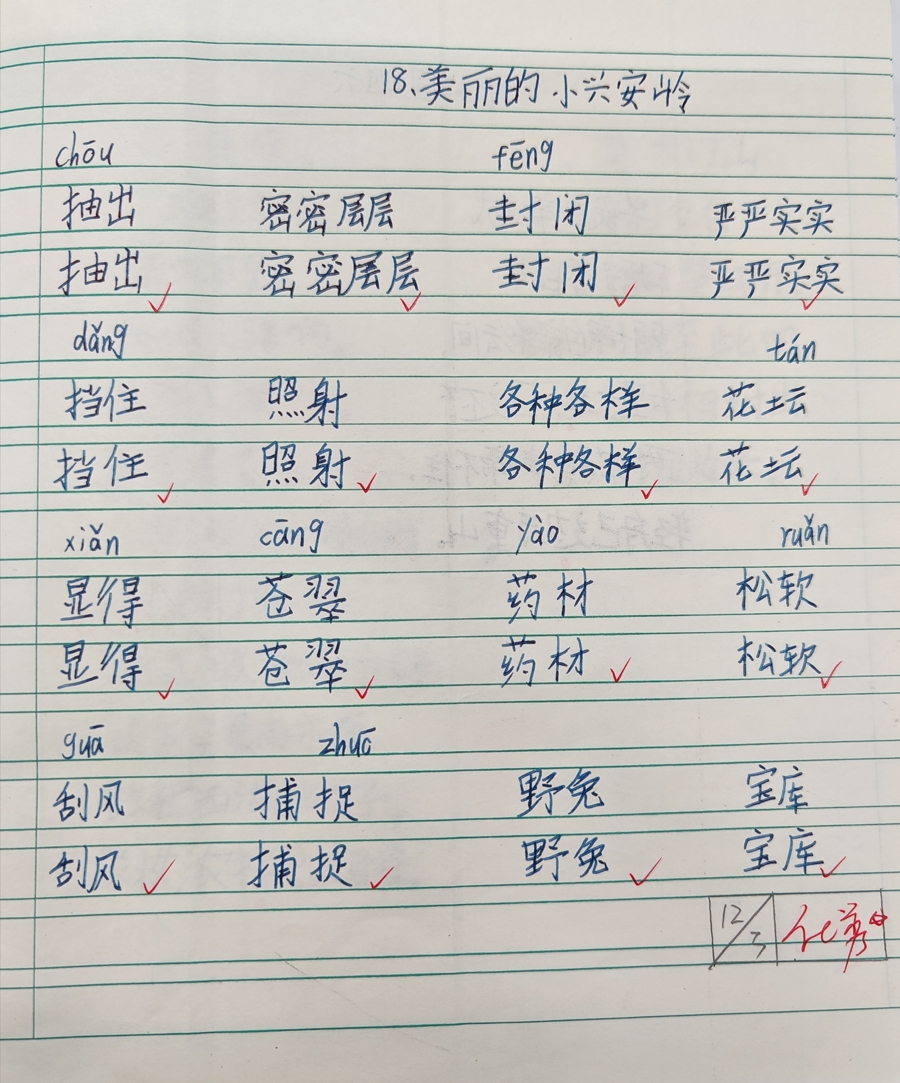 18、美丽的小兴安岭
chōu fēng
抽出 密密层层 封闭 严严实实
抽出 密密层层 封闭 严严实实
dǎng tán
挡住 照射 各种各样 花坛
挡住 照射 各种各样 花坛
xiǎn cāng yào ruǎn
显得 苍翠 药材 松软
显得 苍翠 药材 松软
guā zhuō
刮风 捕捉 野兔 宝库
刮风 捕捉 野兔 宝库
12/3 优秀